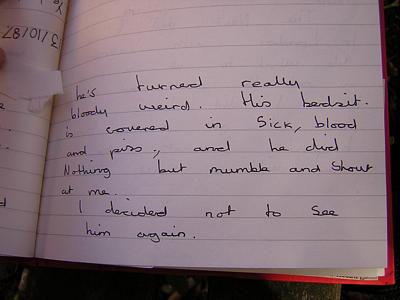 13/10/87
he's turned really
bloody weird. His bedsit.
is covered in Sick, blood
and piss, and he did
Nothing but mumble and Shout
at me.
I decided not to See
him again.